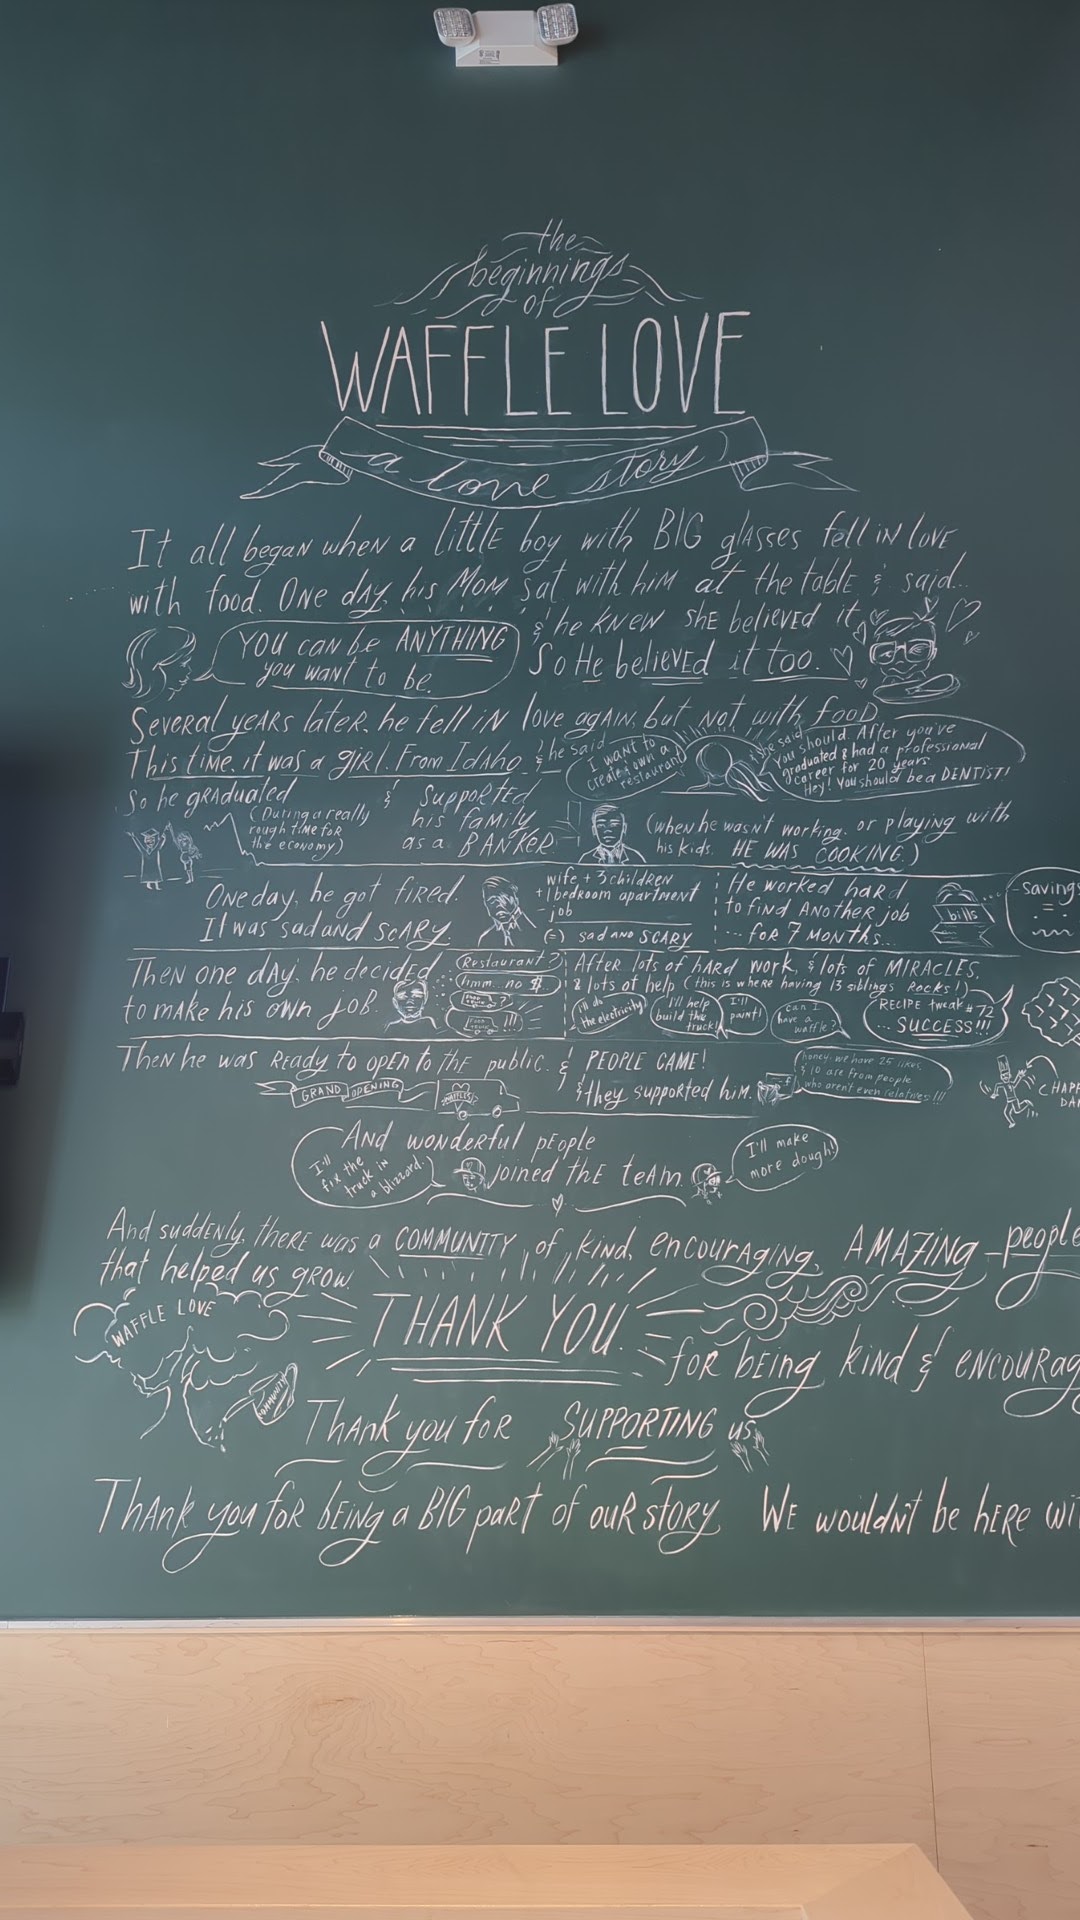 the
beginnings
of
WAFFLE LOVE
a love story
It all began when a little boy with BIG glasses fell in love
with food. One day, his Mom sat with him at the table & said...
YOU can be ANYTHING
you want to be.
& he knew she believed it
So He believed it too.
Several years later, he fell in love again, but not with food
This time, it was a girl. From Idaho & he said
I want to
create my own
restaurant
& she said
You should. After you've
graduated & had a professional
career for 20 years
Hey! You should be a DENTIST!
So he graduated
(During a really
rough time for
the economy)
& Supported
his family
as a BANKER
(when he wasn't working, or playing with
his kids, HE WAS COOKING.)
One day, he got fired.
It was sad and scary.
wife + 3 children
+ 1 bedroom apartment
- job
(=) sad and scary
He worked hard
to find another job
... for 7 months...
bills
- savings
Then one day, he decided
to make his own job.
Restaurant?
Hmm.. no $..
FOOD TRUCK ?
FOOD TRUCK !!!
After lots of hard work, & lots of MIRACLES,
& lots of help (this is where having 13 siblings ROCKS!)
I'll do
the electricity!
I'll help
build the
truck!
I'll
paint!
can I
have a
waffle?
Recipe tweak # 72
... SUCCESS!!!
Then he was ready to open to the public. & PEOPLE CAME!
GRAND OPENING
WAFFLES
& they supported him.
honey, we have 25 likes,
& 10 are from people
who aren't even relatives!!!
HAPPY
DAN
And wonderful people
joined the team.
I'll
fix the
truck in
a blizzard.
I'll make
more dough!
And suddenly, there was a COMMUNITY of kind, encouraging, AMAZING people
that helped us grow.
WAFFLE LOVE
COMMUNITY
THANK YOU.
for being kind & encourag
Thank you for SUPPORTING us
Thank you for being a BIG part of our story. We wouldn't be here wi